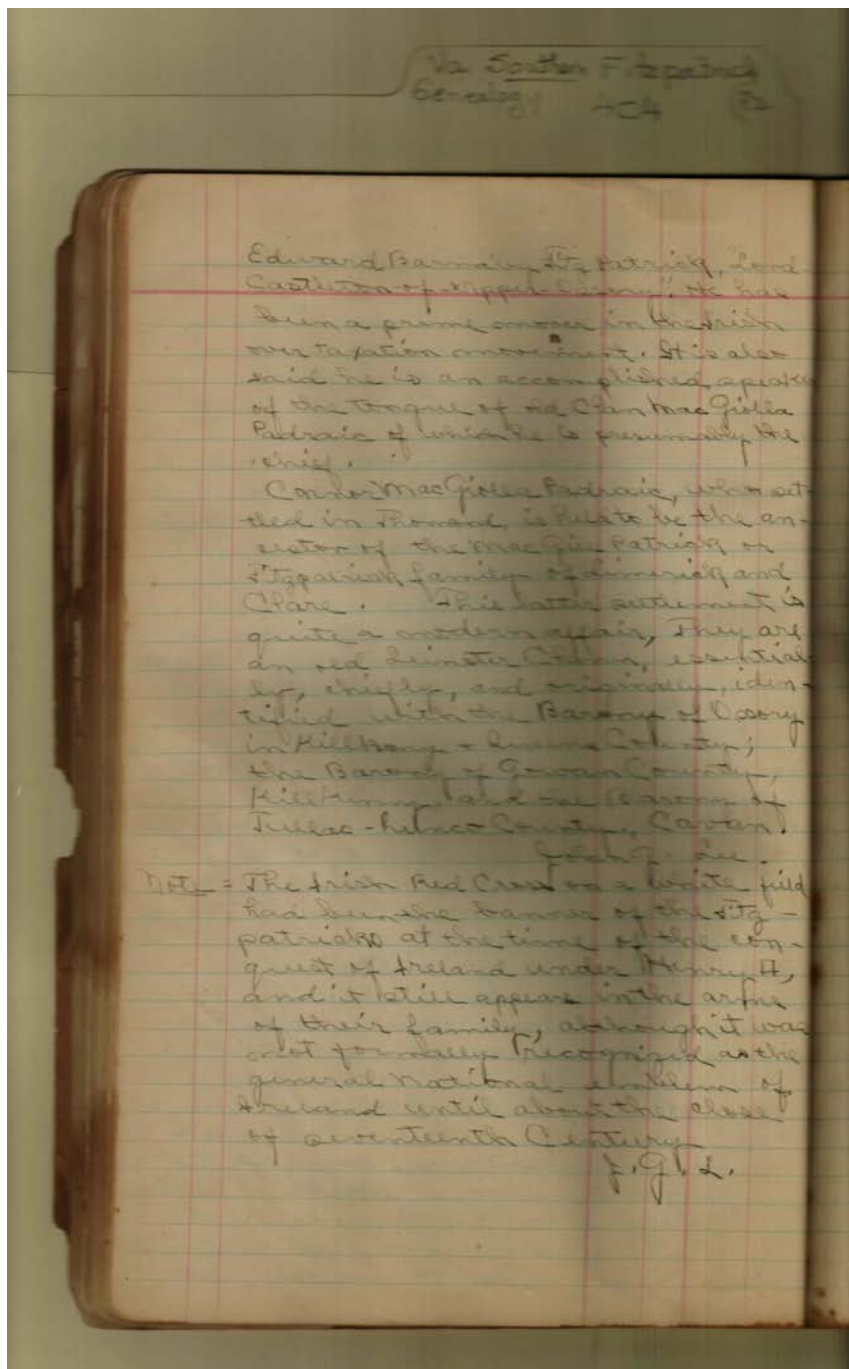 Va Southern Fitzpatrick
Genealogy 404
Edward Barnaby Fitz Patrick, Lord
Castleton-of-Upper-Ossory"; He has
been a prime mover in the Irish
over taxation movement. It is also
said he is an accomplished speaker
of the tongue of old Clan MacGiolla
Padraic of which he is presumably the
chief.
Connor MacGiolla Padraic, who set-
tled in Thomond, is held to be the an-
cestor of the MacGill Patrick or
Fitzpatrick family of Limerick and
Clare. This latter settlement is
quite a modern affair, They are
an old Leinster Clann, essential-
ly, chiefly, and originally, iden-
tified with the Barony of Ossory
in Killkenny + Queens County;
the Barony of Gowan County,
Killkenny and the Barony of
County, Cavan.
Lee.
Note = The Irish Red Cross on a white field
had been the banner of the Fitz-
patricks at the time of the con-
quest of Ireland under Henry II,
and it still appears in the arms
of their family, although it was
not formally recognized as the
general national emblem of
Ireland until about the close
of seventeenth Century
J. G. L.